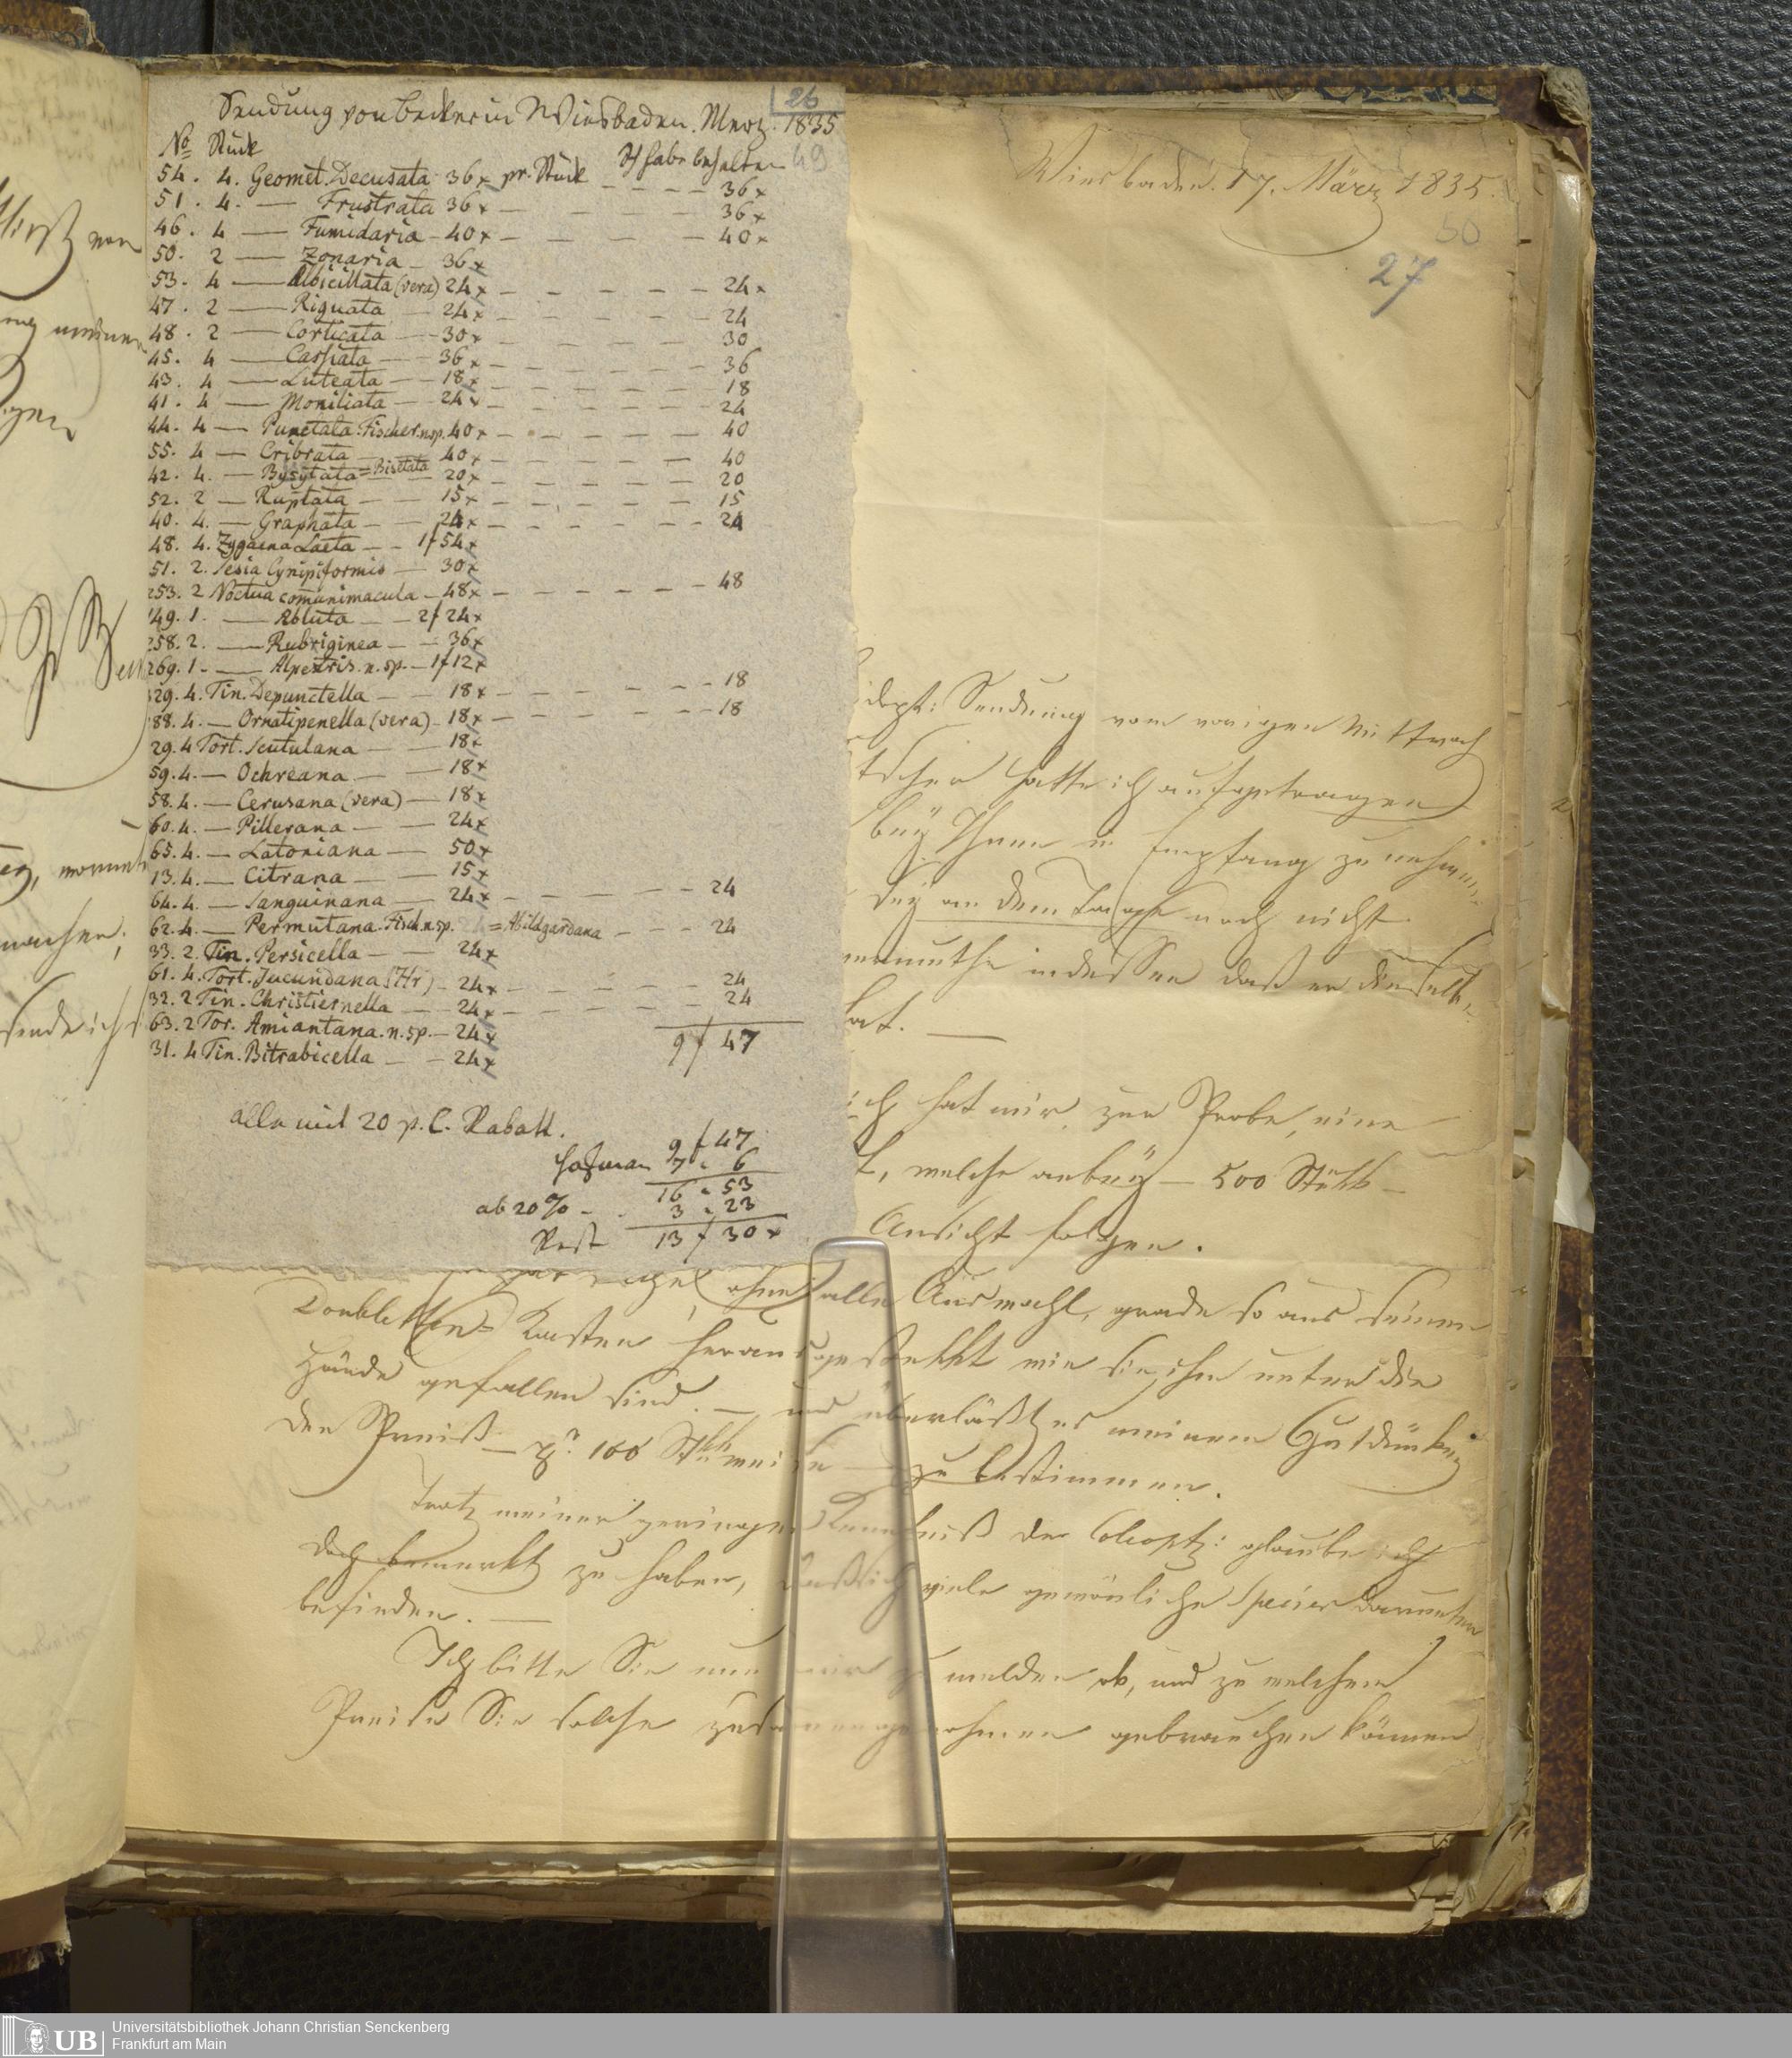 26
Sendung von Becker in Wiesbaden. Merz. 1835
49
No Stück
Ich habe behalten
54. 4. Geomet. Decusata 36x pr. Stück - - - - 36x
51. 4. — Frustrata 36x — - - - 36x
46. 4 — Fumidaria - 40x — - - - 40x
50. 2 — Zonaria - 36x
53. 4 — Albicillata (vera) 24x - - - - - 24x
47. 2 — Riguata — 24x - - - - - 24
48. 2 — Corticata — 30x - - - - - 30
45. 4 — Cassiata — 36x - - - - - 36
43. 4 — Luteata — 18x - - - - - 18
41. 4 — Moniliata — 24x - - - - - 24
44. 4 — Punctata Fischer. nsp. 40x - - - - - 40
55. 4 — Cribrata 40x - - - - - 40
42. 4. — Bysytata = Bisetata 20x - - - - - 20
52. 2 — Ruptata — 15x - - - - - 15
40. 4. — Graphata — 24x - - - - - 24
48. 4. Zygaena Laeta — 1f 54x
51. 2. Sesia Cynipiformis — 30x
253. 2 Noctua comunimacula - 48x - - - - - 48
149. 1. — Abluta — 2f 24x
258. 2. — Rubriginea — 36x
269. 1 - — Alpestris. n. sp. - 1f 12x
329. 4. Tin. Depunctella — 18x - - - - - 18
88. 4. — Ornatipenella (vera) - 18x - - - - - 18
29. 4 Tort. Scutulana — 18x
59. 4. — Ochreana — 18x
58. 4. — Cerusana (vera) — 18x
60. 4. — Pillerana — 24x
65. 4. — Latoniana — 50x
13. 4. — Citrana — 15x
64. 4. — Sanguinana — 24x - - - - - 24
62. 4. — Permutana. Fisch. nsp. = Abildgardana - - - 24
33. 2. Tin. Persicella — 24x
61. 4. Tort. Jucundana (Hr) - 24x - - - - 24
32. 2 Tin. Christiernella — 24x - - - - 24
63. 2 Tor. Amiantana. n. sp. - 24x
31. 4 Tin. Bitrabicella — 24x
9f 47
alle mit 20 p. C. Rabatt.
9f 47
7 „ 6
16 „ 53
ab 20% - . 3 „ 23
Rest 13f 30x
Wiesbaden. 17. März 1835.
50
27
Sendung vom vorigen Mittwoch
hatte ich aufgetragen
bey Ihnen in Empfang zu nehmen
an dem Tage noch nicht
vermuthe indessen daß er dieselbe
hat. —
ich hat mir, zur Probe, eine
welche anbey — 500 Stükk —
Ansicht folgen.
ohne alle Auswahl, grade so aus seinem
Doubletten= Kasten herausgestekkt wie sie ihm unter die
Hände gefallen sind. — und überläßt es meinem Gutdünken
den Preiß — pr 100 Stükkweise — zu bestimmen.
Trotz meiner geringen Kenntniß der Coleopt: glaube ich
doch bemerkt zu haben, daß sich viele gewönliche Species darunter
befinden. —
Ich bitte Sie nun mir zu melden ob, und zu welchem
Preise Sie solche zusammengenohmen gebrauchen können
UB
Universitätsbibliothek Johann Christian Senckenberg
Frankfurt am Main